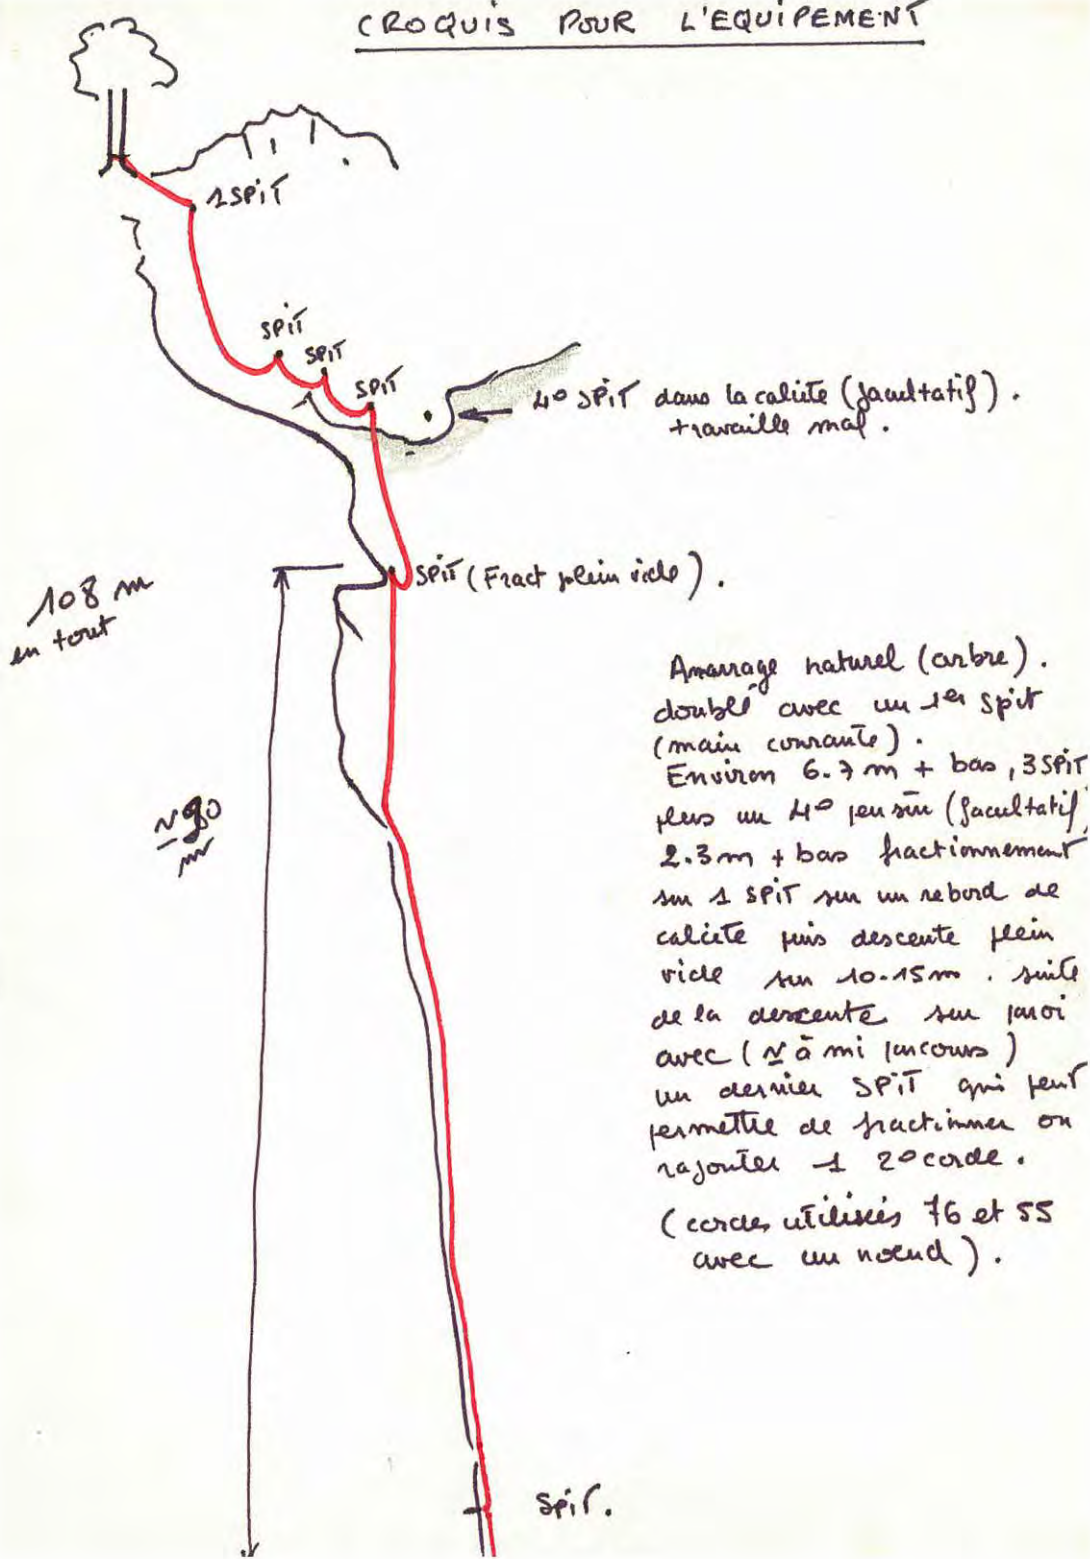 CROQUIS POUR L'EQUIPEMENT
1 SPIT
SPIT
SPIT
SPIT
4° SPIT dans la calcite (facultatif).
travaille mal.
SPIT (Fract plein vide).
108 m
en tout
Amarrage naturel (arbre).
doublé avec un 1er spit
(main courante).
Environ 6.7 m + bas, 3 SPIT
plus un 4° peu sûr (facultatif)
2.3 m + bas fractionnement
sur 1 SPIT sur un rebord de
calcite puis descente plein
vide sur 10.15m. suite
de la descente sur paroi
avec (≃ à mi parcours)
un dernier SPIT qui peut
permettre de fractionner ou
rajouter 1 2° corde.
≃ 90
m
(cordes utilisées 76 et 55
avec un noeud).
SPIT.